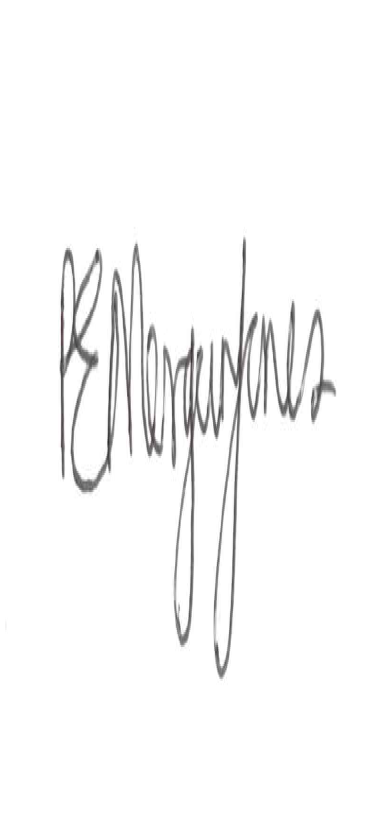 PE Morgan Jones